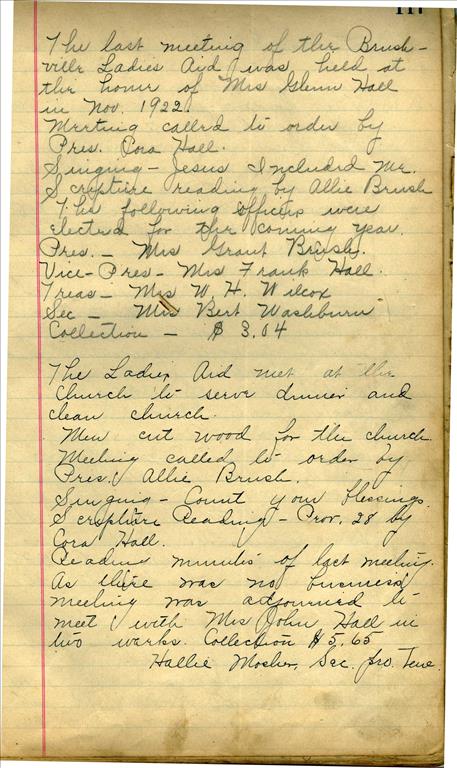 The last meeting of the Brush-
ville Ladies Aid was held at
the home of Mrs Glenn Hall
in Nov. 1922.
Meeting called to order by
Pres. Cora Hall.
Singing - Jesus Included Me.
Scripture reading by Allie Brush
The following officers were
elected for the coming year.
Pres. - Mrs Grant Brush.
Vice-Pres - Mrs Frank Hall.
Treas - Mrs W. H. Wilcox
Sec - Mrs Bert Washburn
Collection - $ 3.04
The Ladies Aid met at the
Church to serve dinner and
clean church.
Men cut wood for the church.
Meeting called to order by
Pres. Allie Brush.
Singing - Count your blessings.
Scripture Reading - Prov. 28 by
Cora Hall.
Reading minutes of last meeting.
As there was no business,
meeting was adjourned to
meet with Mrs John Hall in
two weeks. Collection $5.65
Hallie Mosher, Sec. pro. Tem.